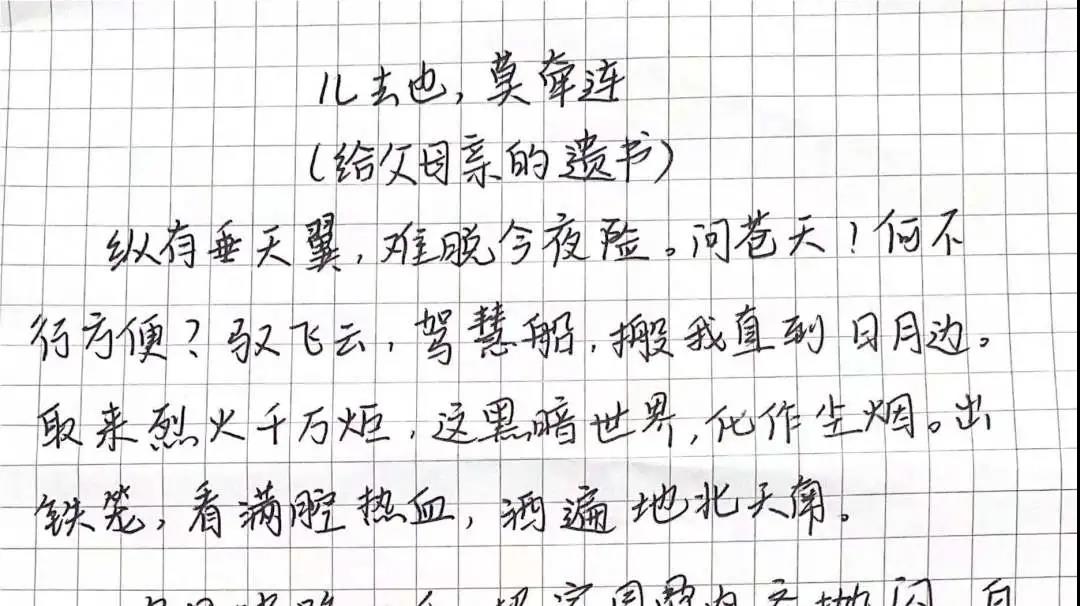 儿去也，莫牵连
（给父母亲的遗书）
纵有垂天翼，难脱今夜险。问苍天！何不
行方便？驭飞云，驾慧船，搬我直到日月边。
取来烈火千万炬，这黑暗世界，化作尘烟。出
铁笼，看满腔热血，洒遍地北天南。